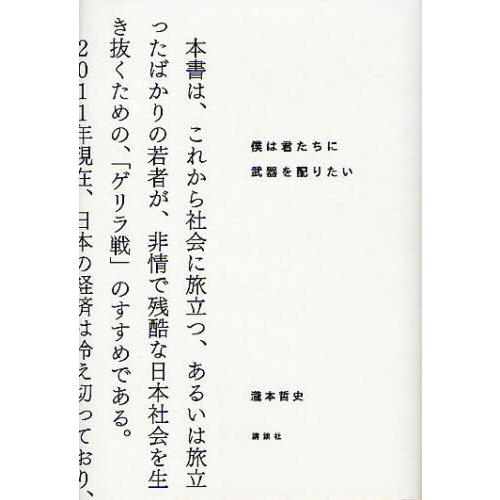 本書は、これから社会に旅立つ、あるいは旅立
ったばかりの若者が、非情で残酷な日本社会を生
き抜くための、「ゲリラ戦」のすすめである。
2011年現在、日本の経済は冷え切っており、
僕は君たちに
武器を配りたい
瀧本哲史
講談社